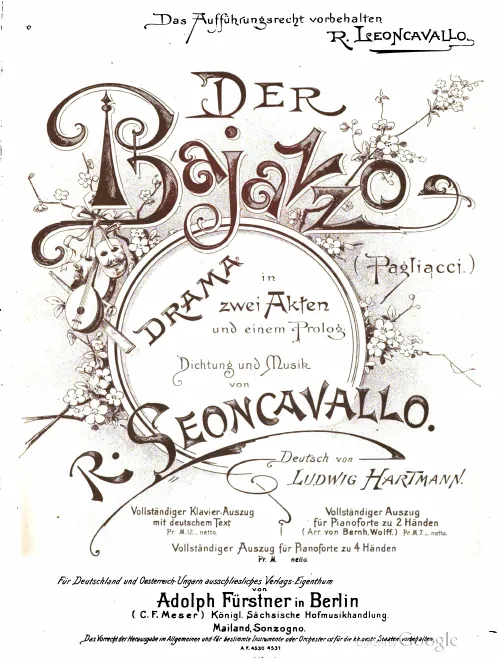 Das Aufführungsrecht vorbehalten
R. LEONCAVALLO.
DER
Bajazzo
(Pagliacci.)
DRAMA
in
zwei Akten
und einem Prolog
Dichtung und Musik
von
R. LEONCAVALLO.
Deutsch von
LUDWIG HARTMANN.
Vollständiger Klavier-Auszug
mit deutschem Text
Pr. M. 12._ netto.
Vollständiger Auszug
für Pianoforte zu 2 Händen
(Arr. von Bernh. Wolff.) Pr. M. 7._ netto.
Vollständiger Auszug für Pianoforte zu 4 Händen
Pr. M. netto.
Für Deutschland und Oesterreich-Ungarn ausschliesliches Verlags-Eigenthum
von
Adolph Fürstner in Berlin
(C. F. Meser) Königl. Sächsische Hofmusikhandlung.
Mailand, Sonzogno.
Das Vorrecht der Herausgabe im Allgemeinen und für bestimmte Instrumente oder Orchester ist für die k.k. oestr. Staaten vorbehalten.
A. F. 4530 4531
Digitized by Google